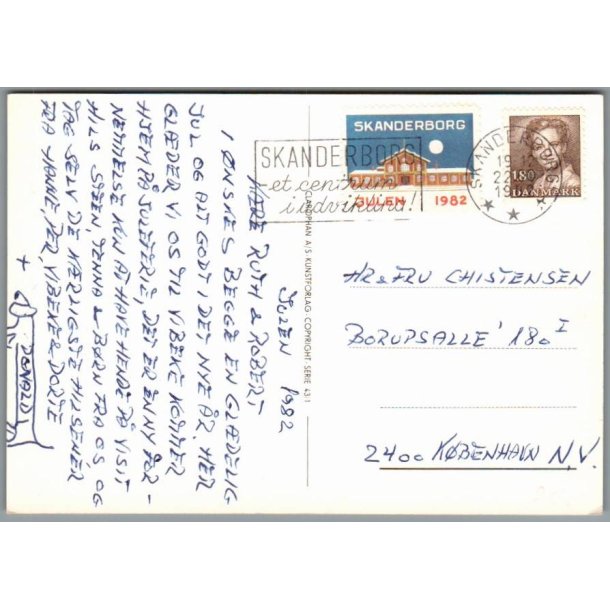 JULEN 1982
KÆRE RUTH & ROBERT
I ØNSKES BEGGE EN GLÆDELIG
JUL OG ALT GODT I DET NYE ÅR, HER
GLÆDER VI OS TIL VIBEKE KOMMER
HJEM PÅ JULEFERIE, DET ER EN NY FOR-
NEMMELSE KUN AT HAVE HENDE PÅ VISIT
HILS STEEN, JENNA & BØRN FRA OS, OG
TAG SELV DE KÆRLIGSTE HILSENER
FRA HANNE, PER, VIBEKE & DORTE
+
DONALD
CLAROPHAN A/S KUNSTFORLAG COPYRIGHT SERIE 431
SKANDERBORG
et centrum
i udvikling!
SKANDERBORG
JULEN 1982
SKANDERBORG
19
22
19
180
DANMARK
HR & FRU CHISTENSEN
BORUPSALLE' 180 I
2400 KØBENHAVN N.V.